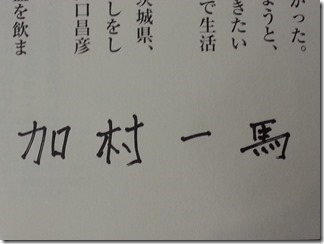 がった。
ようと、
きたい
で生活
茨城県、
しをし
口昌彦
を飲ま
加村一馬